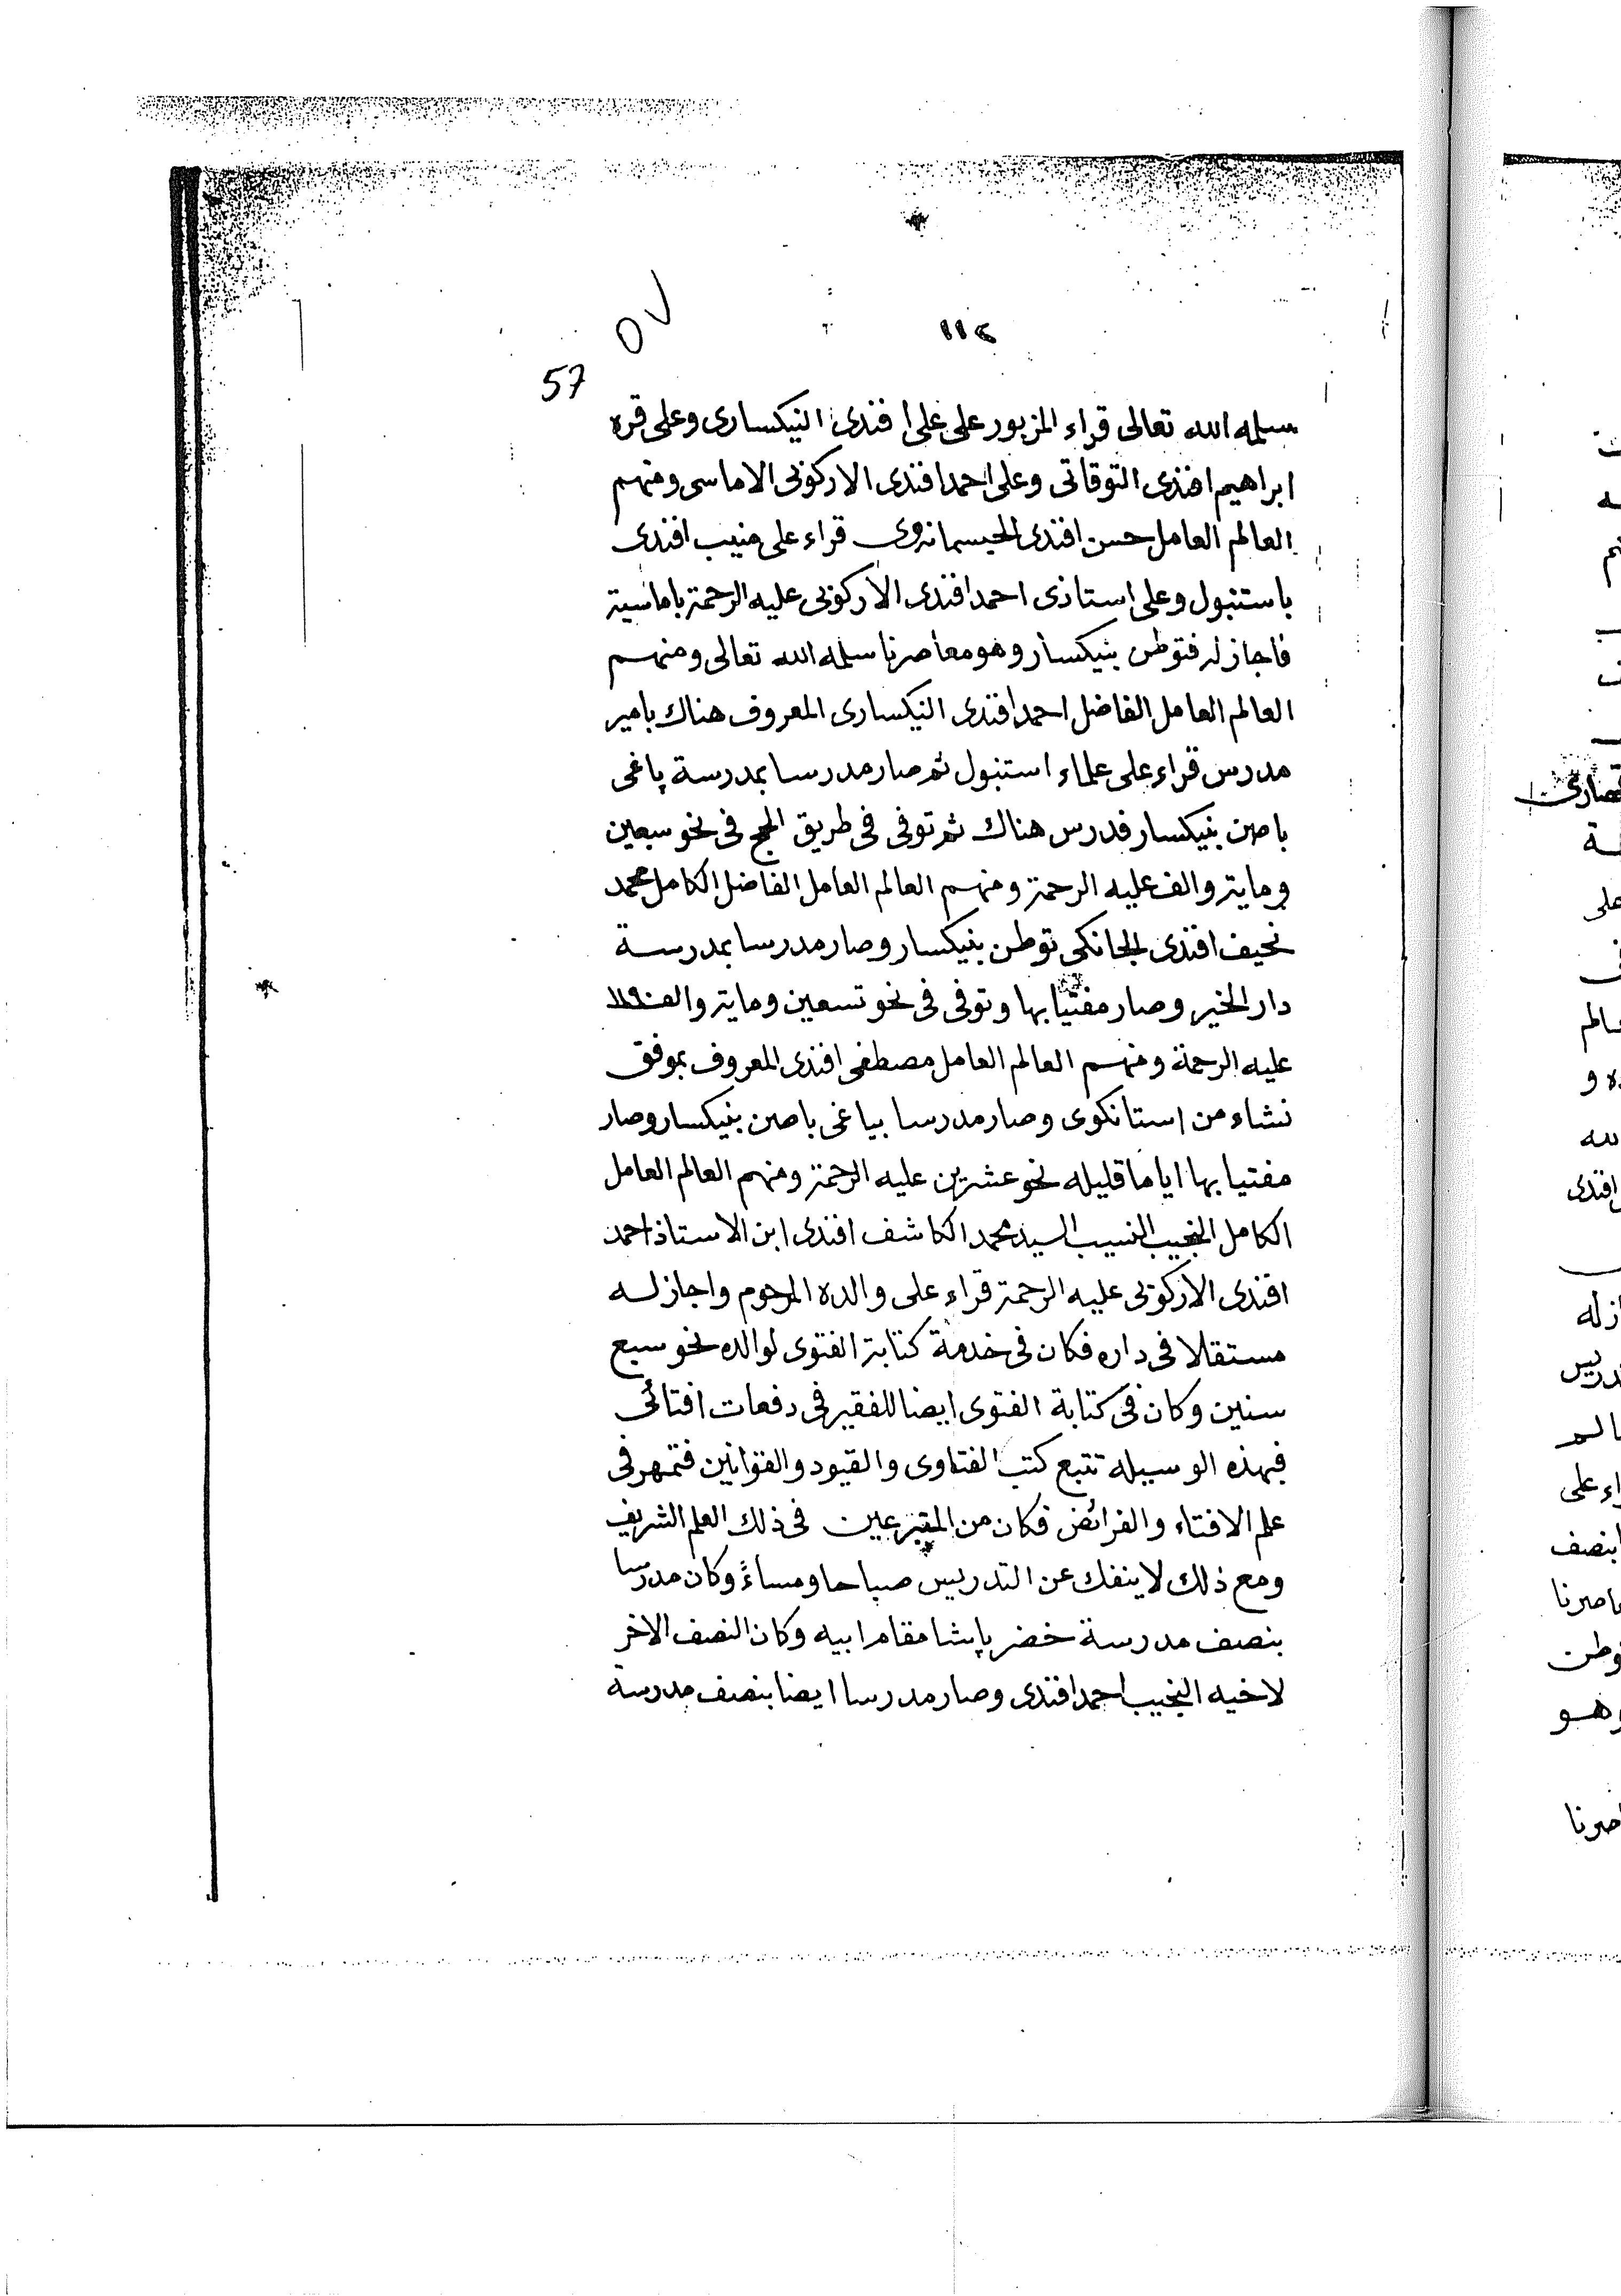 ١١٤
٥٧
57
سلمه الله تعالى قراء المزبور على على افندى النيكسارى وعلى قره
ابراهيم افندى التوقاتى وعلى احمد افندى الاركوبى الاماسى ومنهم
العالم العامل حسن افندى قراء على منيب افندى
باستنبول وعلى استاذى احمد افندى الاركوبى عليه الرحمة باماسية
فاجاز له فتوطن بنيكسار وهو معاصرنا سلمه الله تعالى ومنهم
العالم العامل الفاضل احمد افندى النيكسارى المعروف هناك بامير
مدرس قراء على علماء استنبول ثم صار مدرسا بمدرسة ياغى
باصن بنيكسار فدرس هناك ثم توفى فى طريق الحج فى نحو سبعين
وماية والف عليه الرحمة ومنهم العالم العامل الفاضل الكامل محمد
نحيف افندى الجانكى توطن بنيكسار وصار مدرسا بمدرسة
دار الخير وصار مفتيا بها وتوفى فى نحو تسعين وماية والف ١١٩٠
عليه الرحمة ومنهم العالم العامل مصطفى افندى المعروف بموفق
نشاء من استانكوى وصار مدرسا بياغى باصن بنيكسار وصار
مفتيا بها اياما قليله نحو عشرين عليه الرحمة ومنهم العالم العامل
الكامل النجيب النسيب السيد محمد الكاشف افندى ابن الاستاذ احمد
افندى الاركوبى عليه الرحمة قراء على والده المرحوم واجاز له
مستقلا فى داره فكان فى خدمة كتابة الفتوى لوالده نحو سبع
سنين وكان فى كتابة الفتوى ايضا للفقير فى دفعات افتائى
فبهذه الوسيله تتبع كتب الفتاوى والقيود والقوانين فتمهر فى
علم الافتاء والفرائض فكان من المتبرعين فى ذلك العلم الشريف
ومع ذلك لا ينفك عن التدريس صباحا ومساءً وكان مدرسا
بنصف مدرسة خضر پاشا مقام ابيه وكان النصف الاخر
لاخيه النجيب احمد افندى وصار مدرسا ايضا بنصف مدرسة